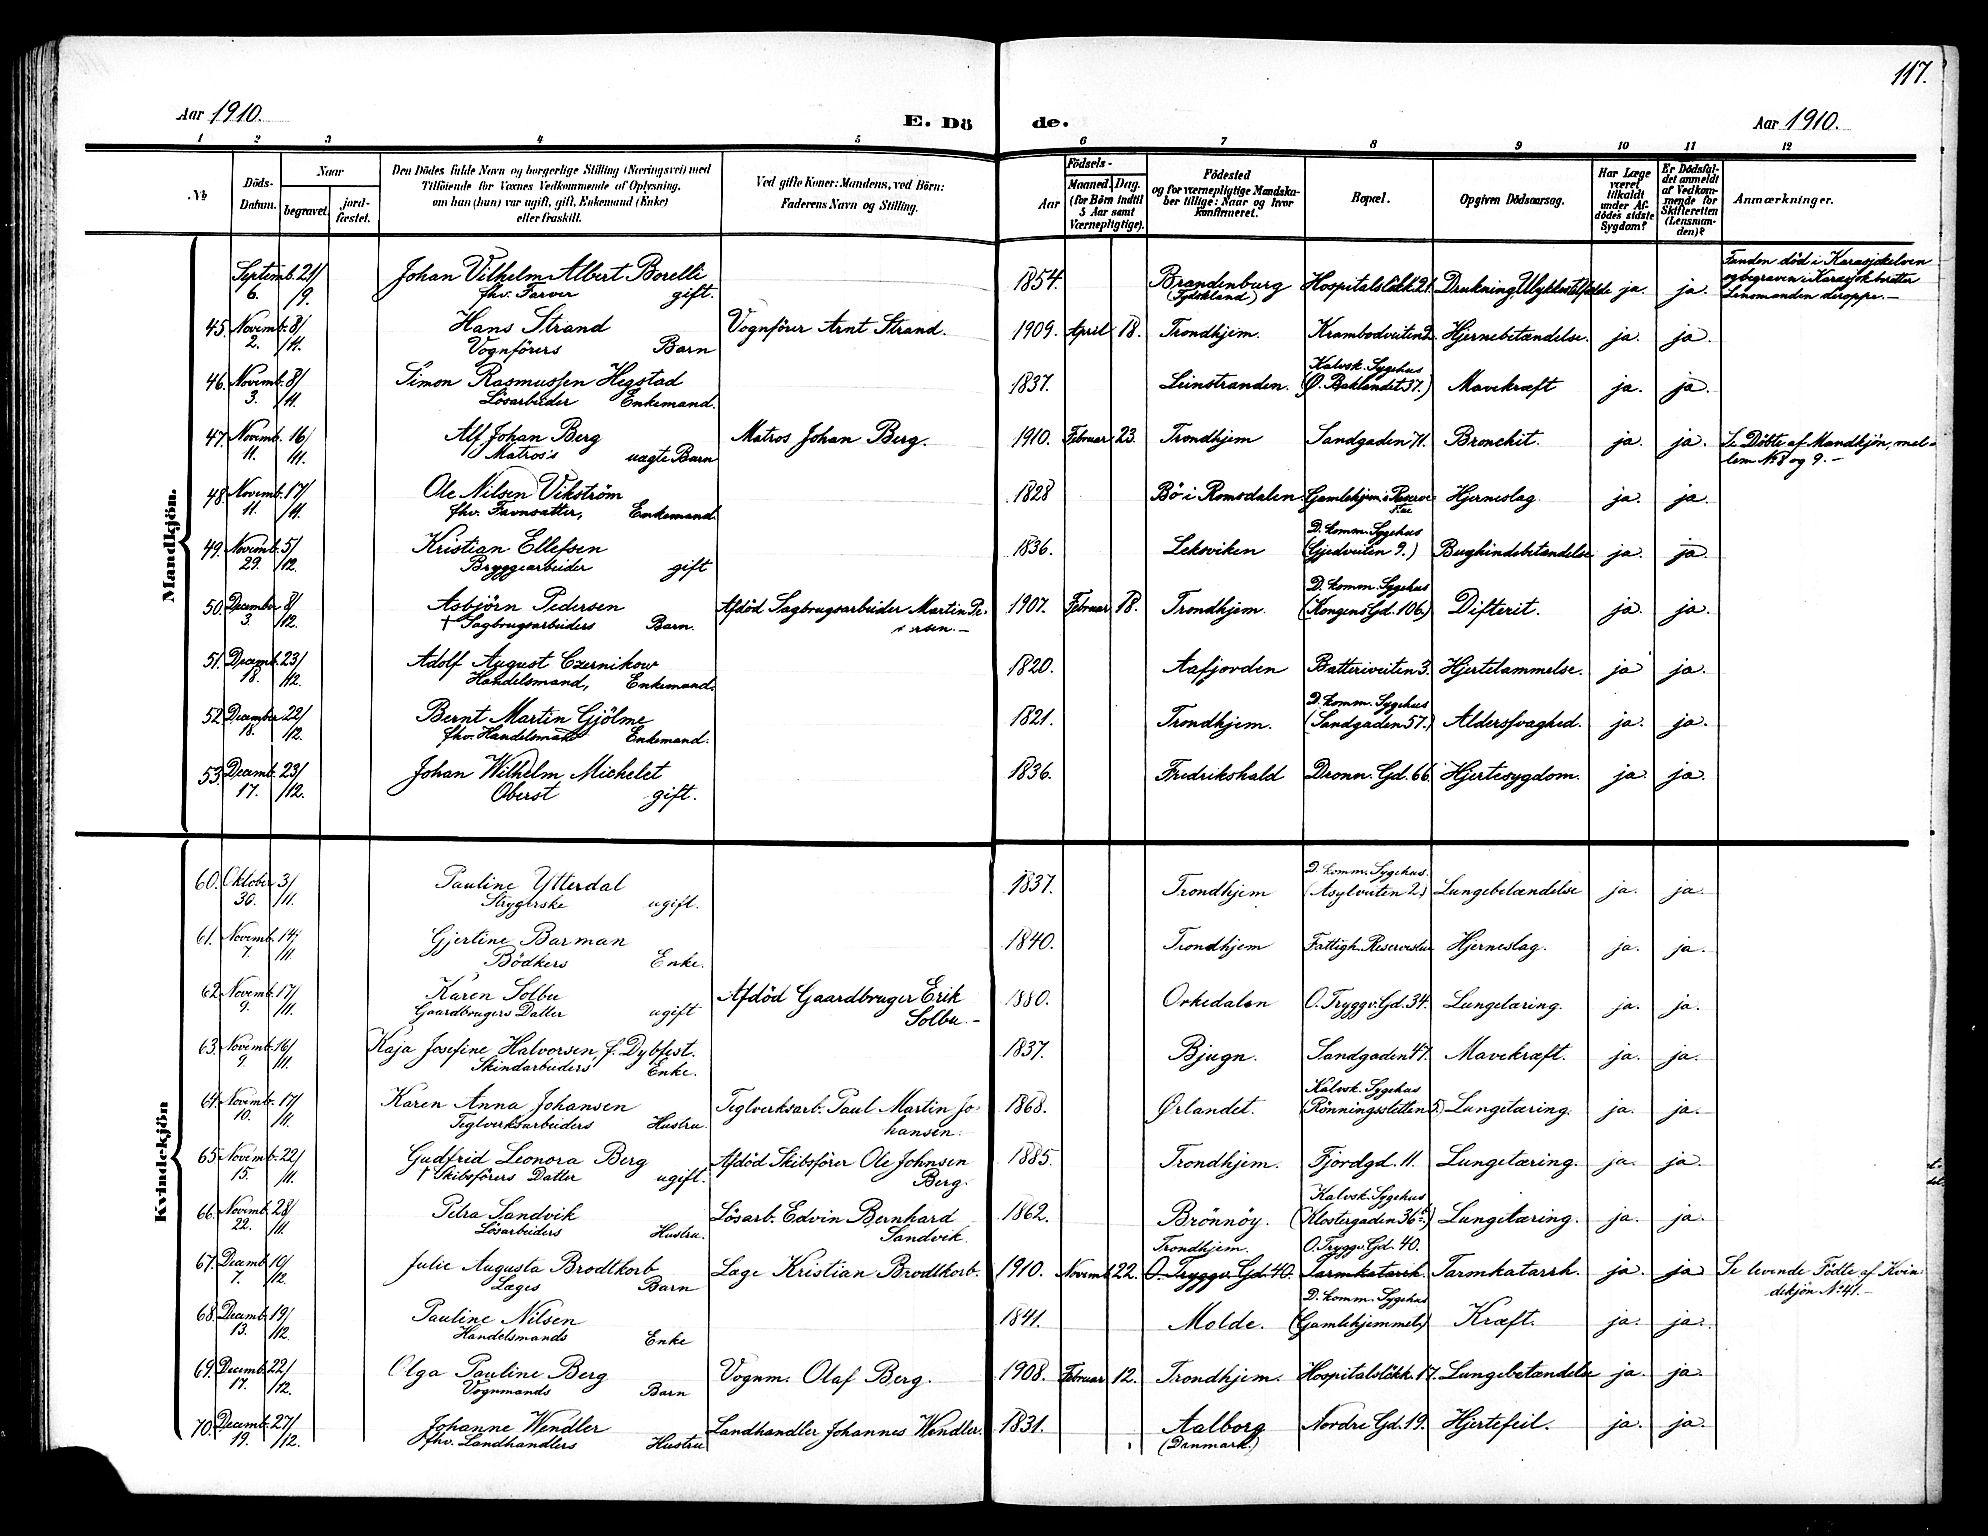 117.
Aar 1910.
E. Dö de.
Aar 1910.
1 2 3 4 5 6 7 8 9 10 11 12
No.
Döds-Datum.
Naar
begravet.
jord-fæstet.
Den Dödes fulde Navn og borgerlige Stilling (Næringsvei) med
Tilföiende for Voxnes Vedkommende af Oplysning,
om han (hun) var ugift, gift, Enkemand (Enke)
eller fraskilt.
Ved gifte Koner: Mandens, ved Börn:
Faderens Navn og Stilling.
Födsels-
Aar
Maaned. Dag.
(for Börn indtil
5 Aar samt
Værnepligtige).
Födested
og for værnepligtige Mandska-
ber tillige: Naar og hvor
konfirmeret.
Bopæl.
Opgiven Dödsaarsag.
Har Læge
været
tilkaldt
under Af-
dödes sidste
Sygdom?
Er Dödsfal-
det anmeldt
af Vedkom-
mende for
Skifteretten
(Lensman-
den)?
Anmærkninger.
Mandkjön.
Septemb. 21/ Johan Vilhelm Albert Borelli 1854. Brandenburg Hospitalslökk. 21. Drukning, Ulykkestilfælde ja. ja. Fanden död i Karasjokelven
6. /9. fhv. Farver gift. (Tydskland) og begraven i Karasjok
Lensmanden deroppe. —
45. Novemb. 8/ Hans Strand Vognförer Arnt Strand. 1909. April 18. Trondhjem. Krambodveiten 2. Hjernebetændelse. ja. ja.
2. /11. Vognförers Barn
46. Novemb. 8/ Simon Rasmussen Hegstad 1837. Leinstranden. Kalvsk. Sygehus (Ø. Baklandet 37.) Mavekræft ja. ja
3. /11. Lösarbeider Enkemand.
47. Novemb. 16/ Alf Johan Berg Matros Johan Berg. 1910. Februar 23. Trondhjem Sandgaden 71. Bronchit. ja. ja. Se Döbte af Mandkjön, mel-
11. /11. Matros's uægte Barn lem No 8 og 9. —
48. Novemb. 17/ Ole Nilsen Vikström 1828 Bö i Romsdalen. Gamlehjem. Reserve Hjerneslag ja. ja.
11. /11. fhv. Favnsætter, Enkemand.
49. Novemb. 5/ Kristian Ellefsen 1836. Leksviken D. komm. Sygehus (Gjedveiten 9.) Bughindebetændelse ja. ja
29. /12. Bryggearbeider gift
50. December 8/ Asbjörn Pedersen Afdöd Sagbrugsarbeider Martin Pe- 1907. Februar 18. Trondhjem. D. komm. Sygehus (Kongens Gd. 106.) Difterit. ja. ja.
3. /12. † Sagbrugsarbeiders Barn. ersen. —
51. Decemb. 23/ Adolf August Czernikow 1820. Aafjorden Batteriveiten 3. Hjertelammelse. ja ja.
18. /12. Handelsmand, Enkemand.
52. December 22/ Bernt Martin Gjölme 1821. Trondhjem. D. komm. Sygehus (Sandgaden 57.) Alderssvaghed. ja. ja.
18. /12. fhv. Handelsmand Enkemand.
53. Decemb. 23/ Johan Wilhelm Michelet 1836. Fredrikshald Dronn. Gd. 66. Hjertesygdom. ja. ja.
17. /12. Oberst gift.
Kvindekjön
60. Oktober 3/ Pauline Ytterdal 1837. Trondhjem D. komm. Sygehus. (Asylveiten 2.) Lungebetændelse ja. ja.
30. /11. Strygerske ugift.
61. Novemb. 14/ Gjertine Barman 1840. Trondhjem Fattigh. Hjerneslag. ja. ja.
7. /11. Bödkers Enke.
62. Novemb. 17/ Karen Solbu Afdöd Gaardbruger Erik 1880. Orkedalen O. Tryggv. Gd. 34. Lungetæring. ja. ja.
9. /11. Gaardbrugers Datter ugift Solbu. —
63. Novemb. 16/ Kaja Josefine Halvorsen, f. Dybfest. 1837. Bjugn. Sandgaden 47. Mavekræft. ja. ja.
9. /11. Skindarbeiders Enke.
64. Novemb. 17/ Karen Anna Johansen Teglverksarb. Paul Martin Jo- 1868. Ørlandet. Kalvsk. Sygehus (Rönningsletten 5.) Lungetæring. ja. ja.
10. /11. Teglverksarbeiders Hustru. hansen.
65. Novemb. 22/ Gudfrid Leonora Berg Afdöd Skibsförer Ole Johnsen 1885. Trondhjem. Fjordgd. 11. Lungetæring. ja. ja.
15. /11. † Skibsförers Datter ugift. Berg.
66. Novemb. 28/ Petra Sandvik Lösarb. Edvin Bernhard 1862. Brönnöy. Kalvsk. Sygehus (Klostergaden 36b.) Lungetæring. ja. ja.
22. /11. Lösarbeiders Hustru. Sandvik.
67. Decemb. 10/ Julie Augusta Brodtkorb Læge Kristian Brodtkorb. 1910. Novemb. 22. Trondhjem. O. Tryggv. Gd. 40. O. Tryggv. Gd. 40. Tarmkatarrh. Tarmkatarrh. ja. ja Se levende Födte af Kvin-
7. /12. Læges Barn dekjön No 41. —
68. Decemb. 19/ Pauline Nilsen 1841. Molde. D. komm. Sygehus (Gamlehjemmet.) Kræft. ja. ja.
13. /12. Handelsmands Enke
69. Decemb. 22/ Olga Pauline Berg Vognm. Olaf Berg. 1908. Februar 12. Trondhjem. Hospitalslökk. 17. Lungebetændelse ja. ja.
17. /12. Vognmands Barn
70. Decemb. 27/ Johanne Wendler Landhandler Johannes Wendler. 1831. Aalborg Nordre Gd. 19. Hjertefeil. ja. ja.
19. /12. fhv. Landhandlers Hustru (Danmark.)